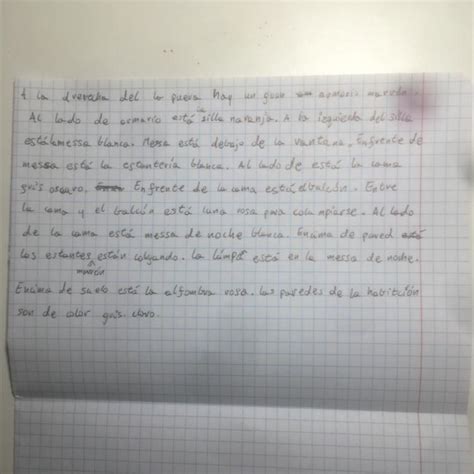 A la derecha del la puera hay un gran armario marrón.
Al lado de armario está la silla naranja. A la izquierda del silla
está la messa blanca. Mesa está debajo de la vantana. Enfrente de
messa está la estantería blanca. Al lado de está la cama
gris oscuro. Enfrente de la cama está el balcón. Entre
la cama y el balcón está una rosa para columpiarse. Al lado
de la cama está messa de noche blanca. Encima de pared
los estantes marrón están colgando. La lámpa está en la messa de noche.
Encima de suelo está la alfombra rosa. Las paredes de la habitición
son de color gris claro.